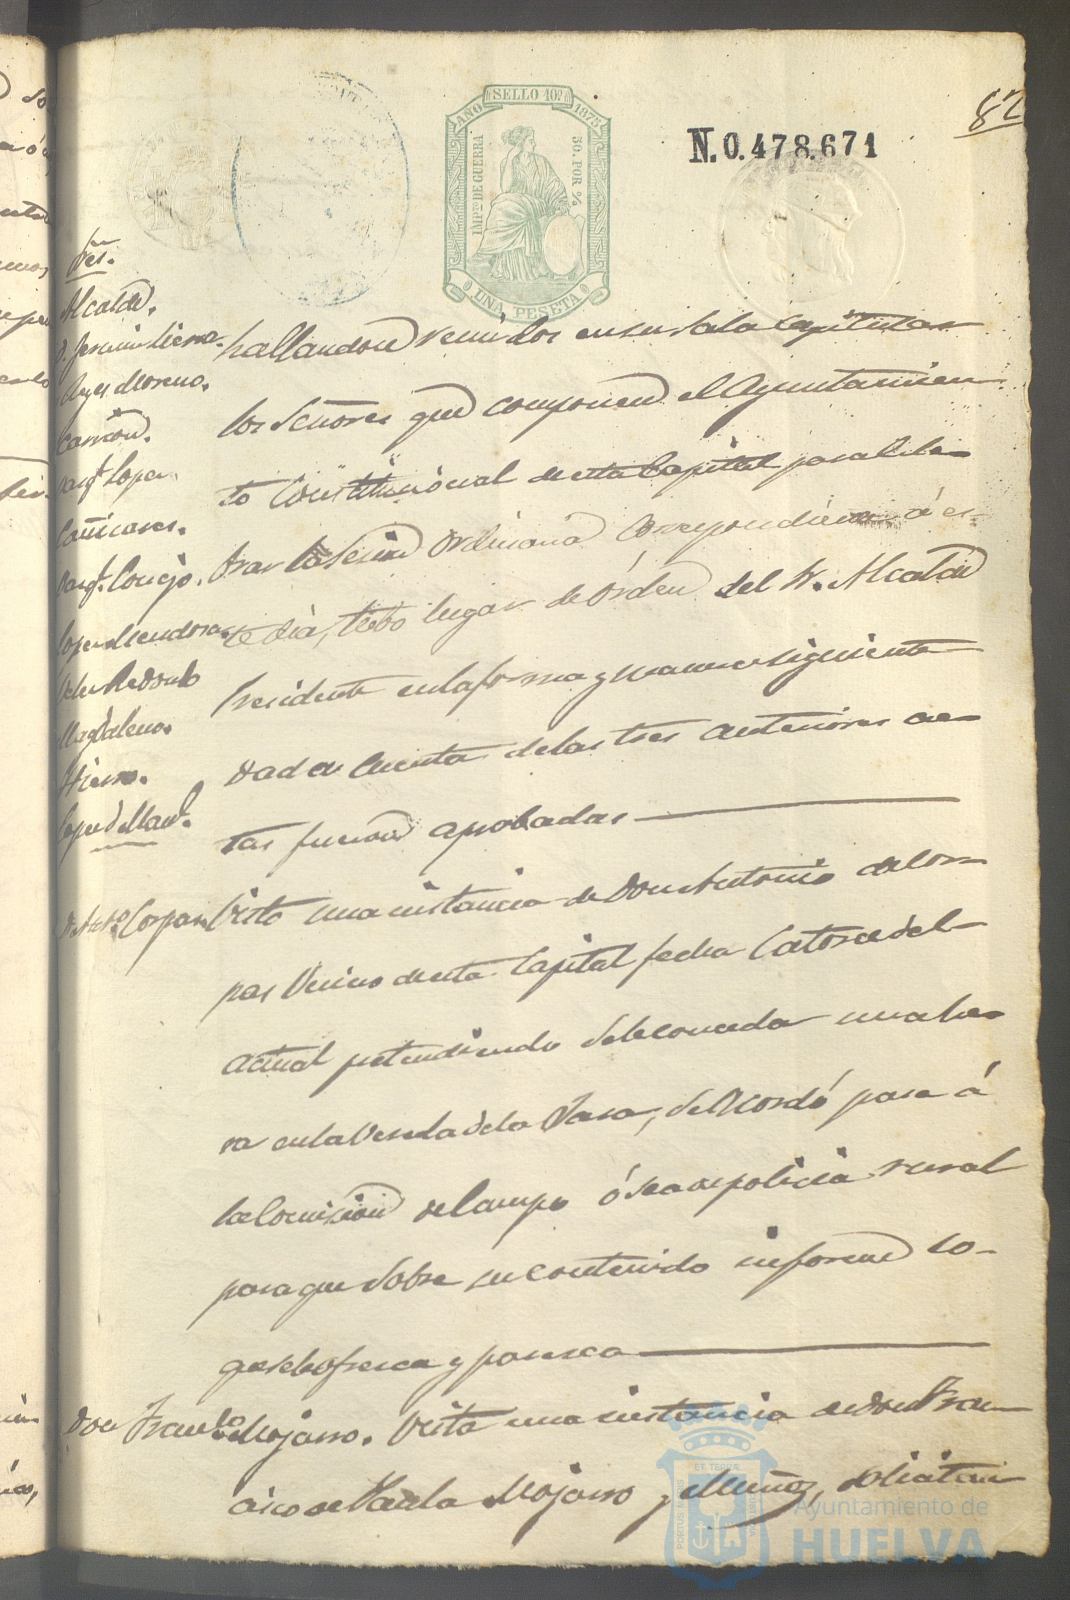 82
AÑO SELLO 10º 1875
IMPTO DE GUERRA
50 POR %
UNA PESETA
N.0.478.671
Sres.
Alcalde.
Reyes Moreno.
Carrión.
Vazqz Lopez.
Cañizares.
Vazqz Conejo.
Lopez Mendoza.
de la Redondo
Magdaleno.
Hierro.
hallandose reunidos en su sala Capitular
los Señores que componen el Ayuntamien
to Constitucional de esta Capital para Cele-
brar la Sesion Ordinaria Correspondiente á es-
te dia, tubo lugar de órden del Sr. Alcalde
Presidente en la forma y manera siguiente
Dada Cuenta de las tres anteriores ac-
tas fueron aprobadas
D. Antº Corpas
Visto una instancia de Don Antonio de Cor-
pas Vecino de esta Capital fecha Catorce del
actual pretendiendo se le conceda una he-
ra en la Vereda de la Jara, se Acordó pase á
la Comision de Campo ó sea de policia rural
para que sobre su contenido informe lo
que se le ofrezca y paresca
Don Franco Mojarro.
Vista una instancia de Don Fran-
cisco de Paula Mojarro y Muñoz, solicitan
PORTUS MARIS
ET TERRÆ
CUSTODIA
Ayuntamiento de
HUELVA